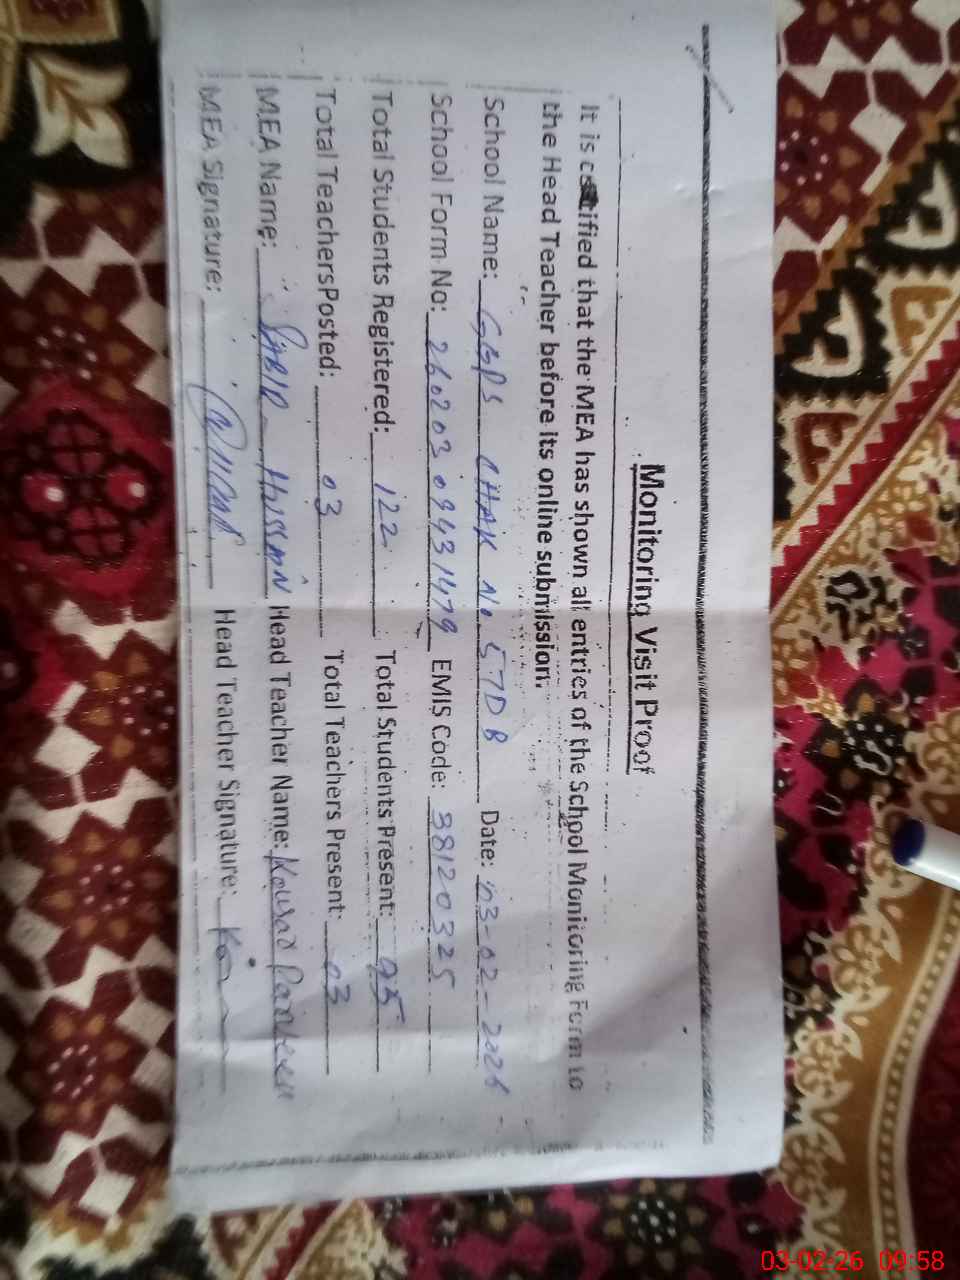 Monitoring Visit Proof
It is certified that the MEA has shown all entries of the School Monitoring Form to
the Head Teacher before its online submission.
School Name: GGPS CHAK No 57DB Date: 03-02-2026
School Form No: 260203 09431479 EMIS Code: 38120325
Total Students Registered: 122 Total Students Present: 95
Total TeachersPosted: 03 Total Teachers Present: 03
MEA Name: HUSSAIN Head Teacher Name: Kousad Parveen
MEA Signature: Head Teacher Signature:
03-02-26 09:58